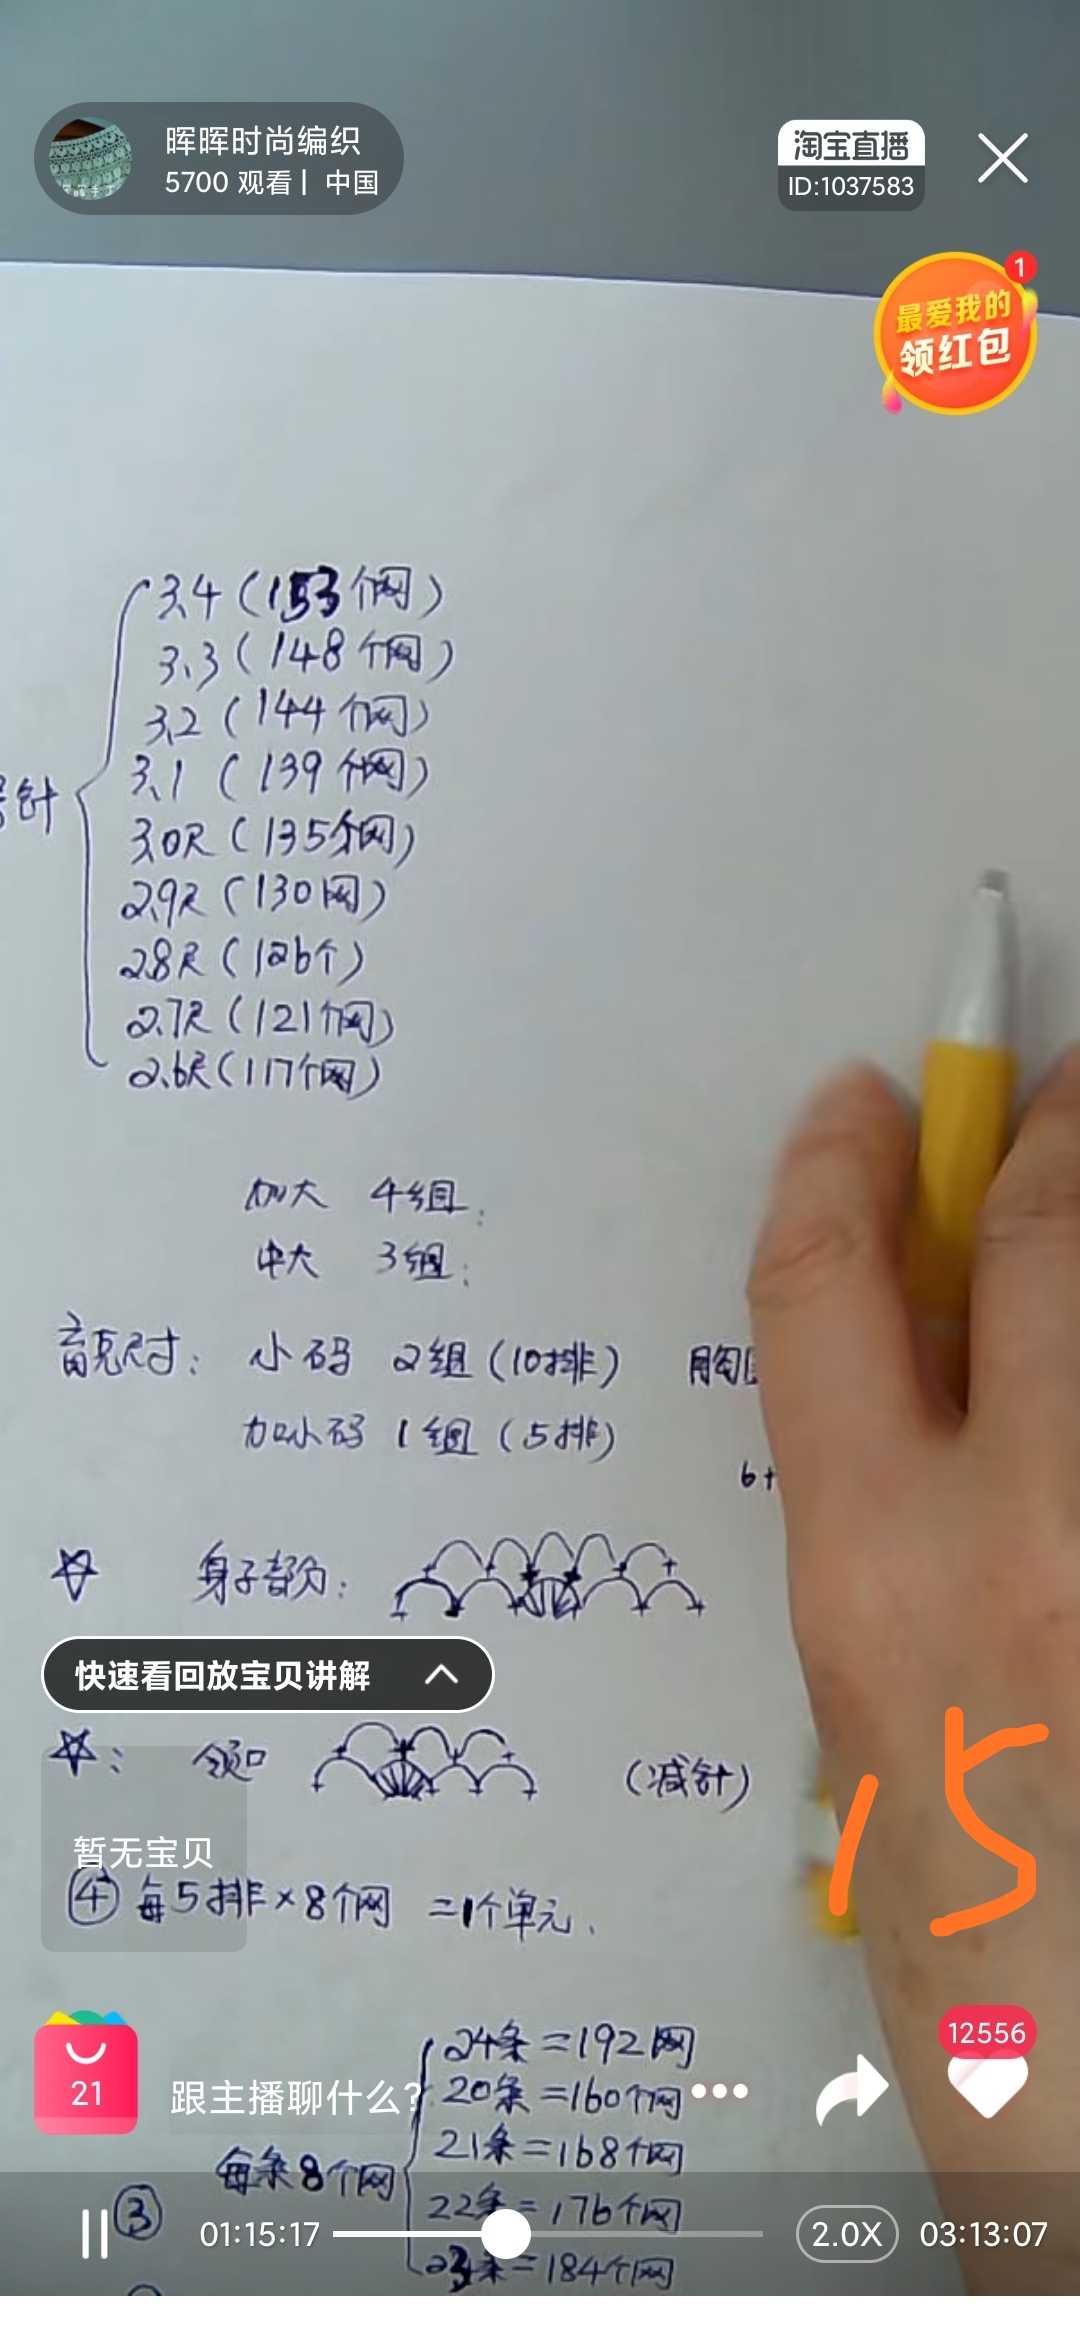 晖晖时尚编织
5700 观看 | 中国
淘宝直播
ID:1037583
1
最爱我的
领红包
3.4 (153个网)
3.3 (148个网)
3.2 (144个网)
3.1 (139个网)
号针
3.0尺 (135个网)
2.9尺 (130网)
2.8尺 (126个)
2.7尺 (121个网)
2.6尺 (117个网)
加大 4组;
中大 3组;
育克尺寸: 小码 2组 (10排) 胸围
加小码 1组 (5排)
6+
身子部分:
快速看回放宝贝讲解
领口 (减针)
15
暂无宝贝
④ 每5排×8个网 =1个单元.
24条=192网
12556
21
跟主播聊什么?
20条=160个网
21条=168个网
每条8个网
③
22条=176个网
01:15:17
2.0X
03:13:07
23条=184个网